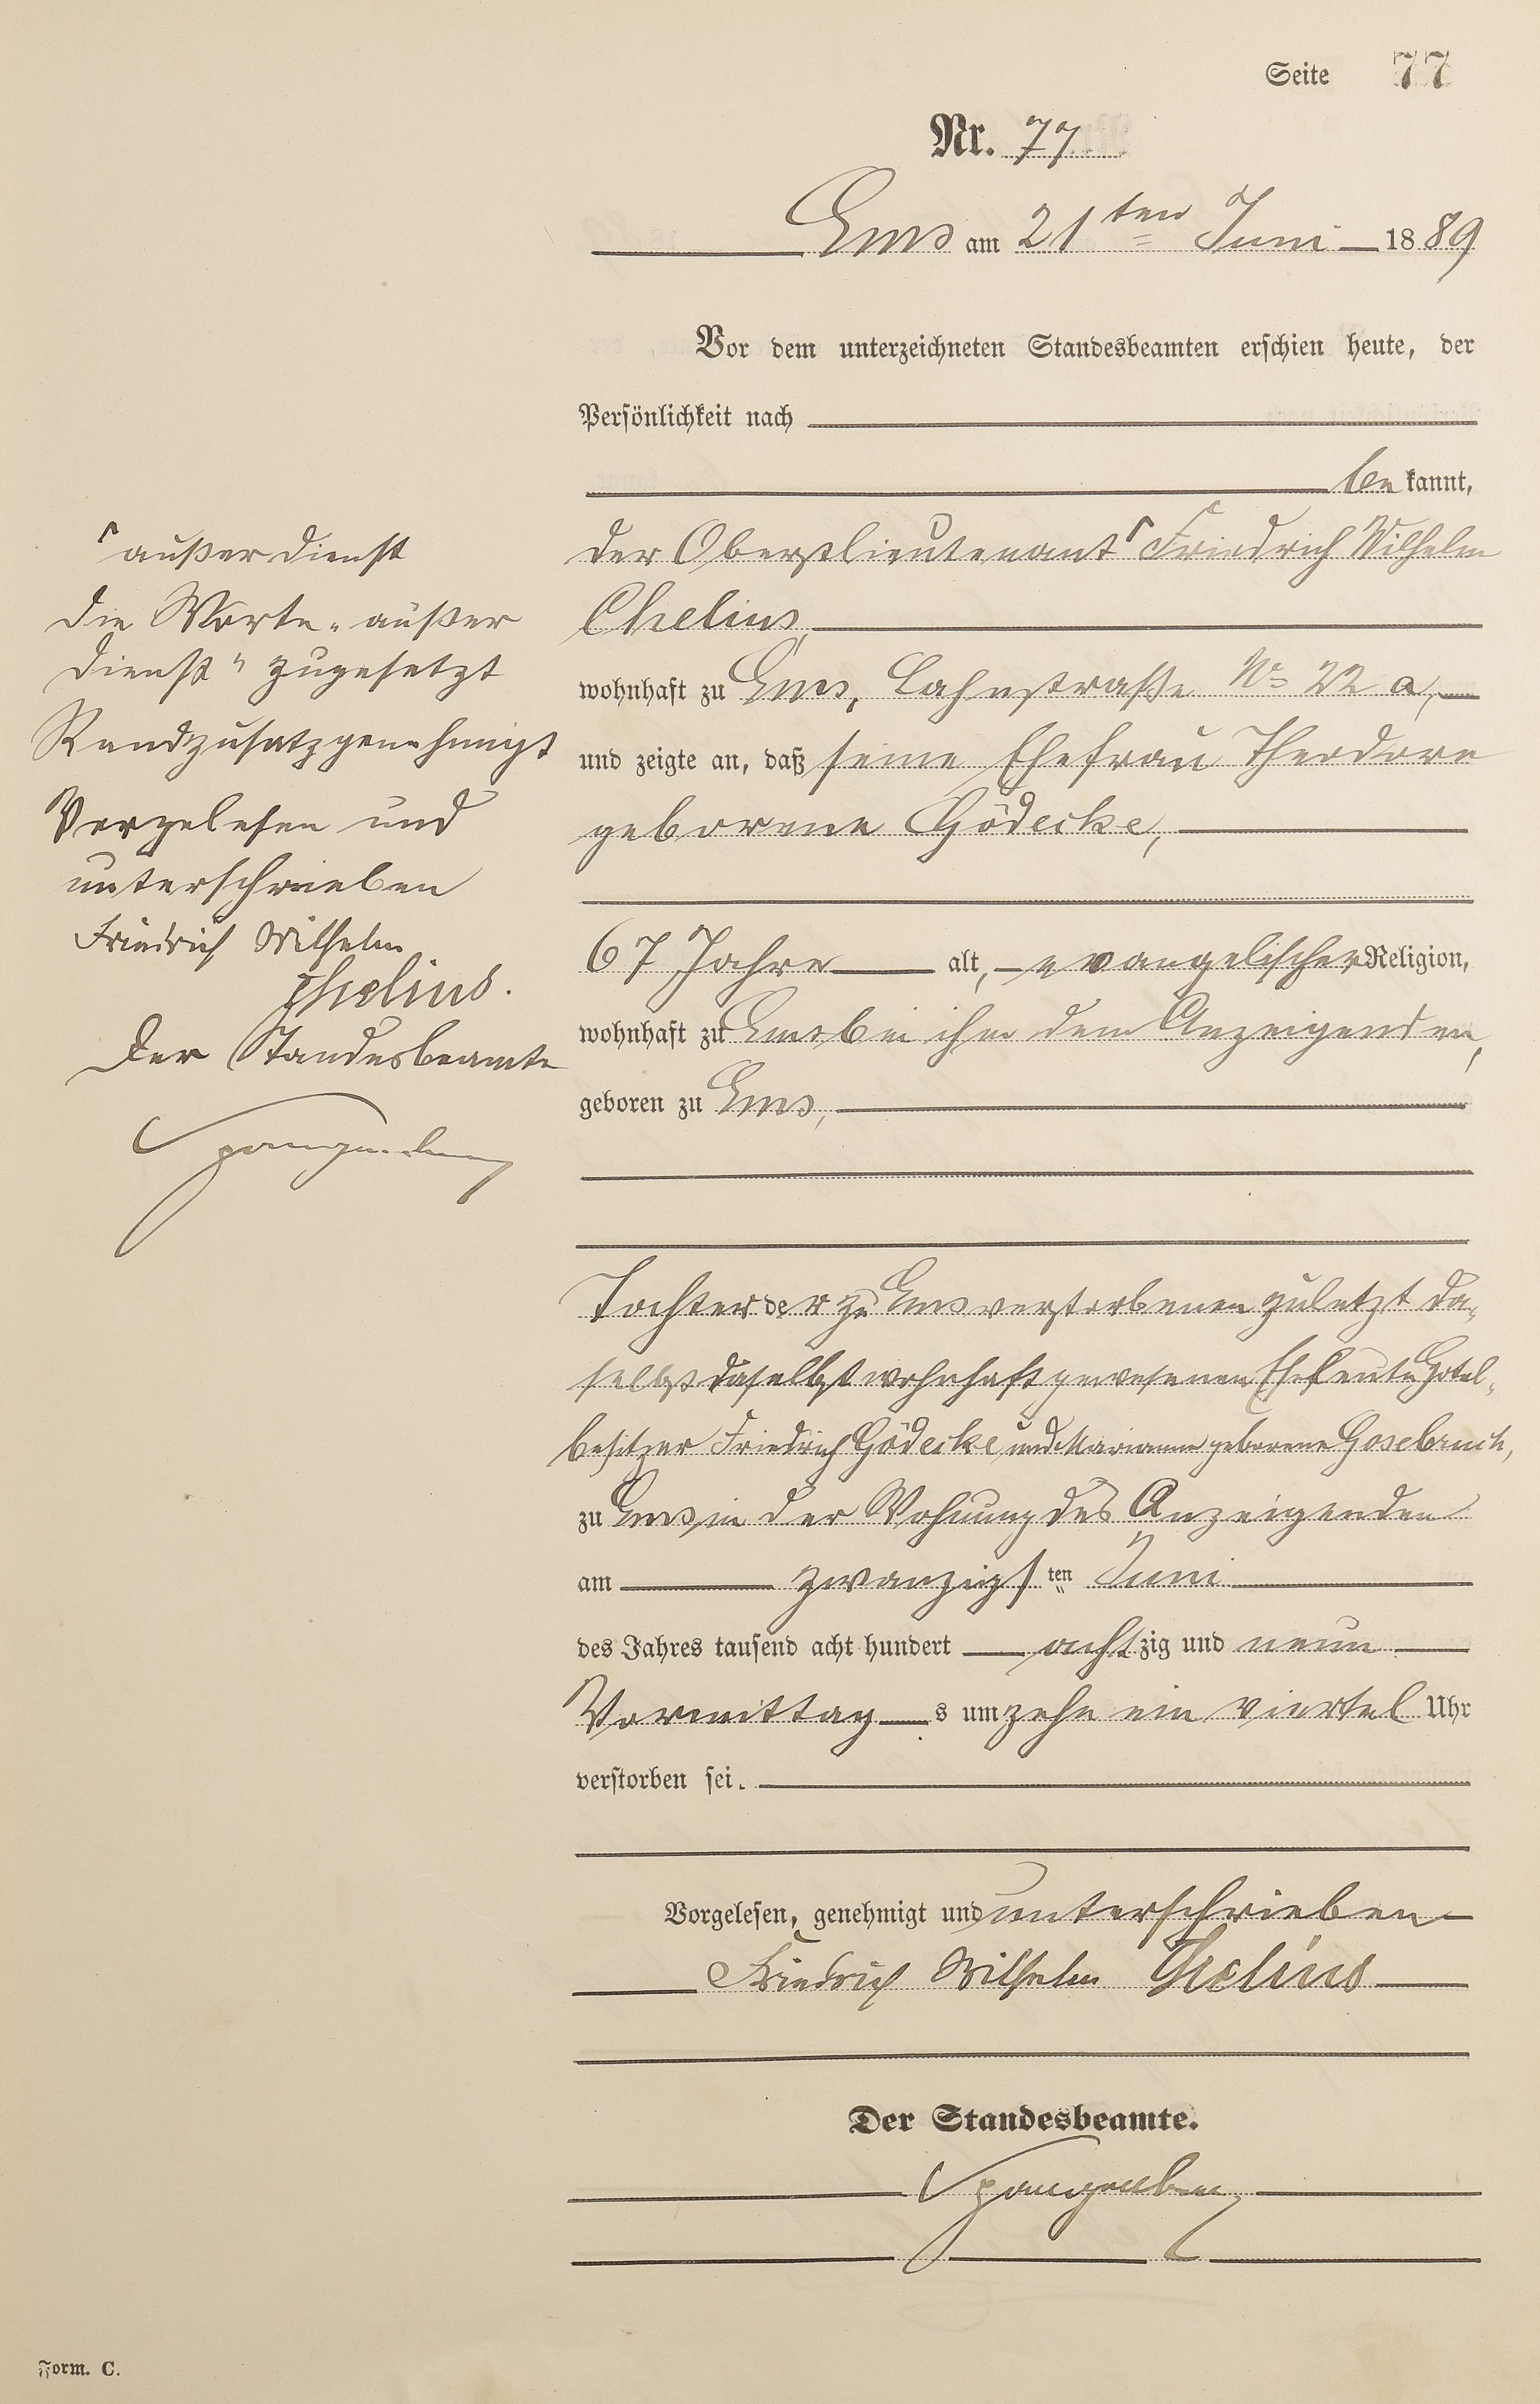 Seite 77
Nr. 77
Ems am 21ten Juni 1889
Vor dem unterzeichneten Standesbeamten erschien heute, der
Persönlichkeit nach
bekannt,
der Oberstlieutenant⌈ Friedrich Wilhelm
Chelius,
wohnhaft zu Ems, Lahnstraße No 22 a,
und zeigte an, daß seine Ehefrau Theodore
geborene Gödecke,
67 Jahre alt, evangelischer Religion,
wohnhaft zu Ems bei ihm dem Anzeigenden,
geboren zu Ems,
Tochter der zu Ems verstorbenen zuletzt da-
selbst daselbst wohnhaft gewesenen Eheleute Hotel-
besitzer Friedrich Gödecke und Marianne geborene Gosebruch,
zu Ems in der Wohnung des Anzeigenden
am zwanzigsten Juni
des Jahres tausend acht hundert achtzig und neun
Vormittags um zehn ein viertel Uhr
verstorben sei.
Vorgelesen, genehmigt und unterschrieben
Friedrich Wilhelm Chelius
Der Standesbeamte.
⌈außer Dienst
Die Worte „außer
Dienst" zugesetzt
Randzusatz genehmigt
Vorgelesen und
unterschrieben
Friedrich Wilhelm
Chelius.
Der Standesbeamte
Form. C.